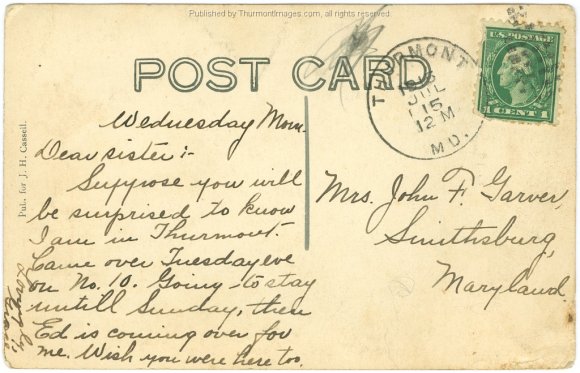 Published by ThurmontImages.com, all rights reserved.
POST CARD
THURMONT
JUL
15
12 M
MD.
U.S. POSTAGE
1 CENT 1
Pub. for J. H. Cassell.
Wednesday Morn.
Dear sister:-
Suppose you will
be surprised to know
I am in Thurmont.
Came over Tuesday eve
on No. 10. Going to stay
untill Sunday, then
Ed is coming over for
me. Wish you were here too.
Lovingly
Mrs. John F. Garver,
Smithsburg,
Maryland